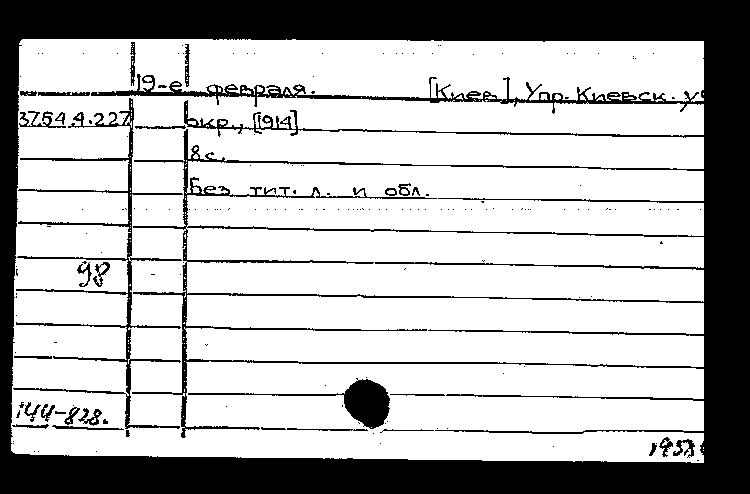 19-е февраля. [Киев], Упр. Киевск.
37.54.4.227 окр., [1914]
8 с.
Без тит. л. и обл.
98
144-828.